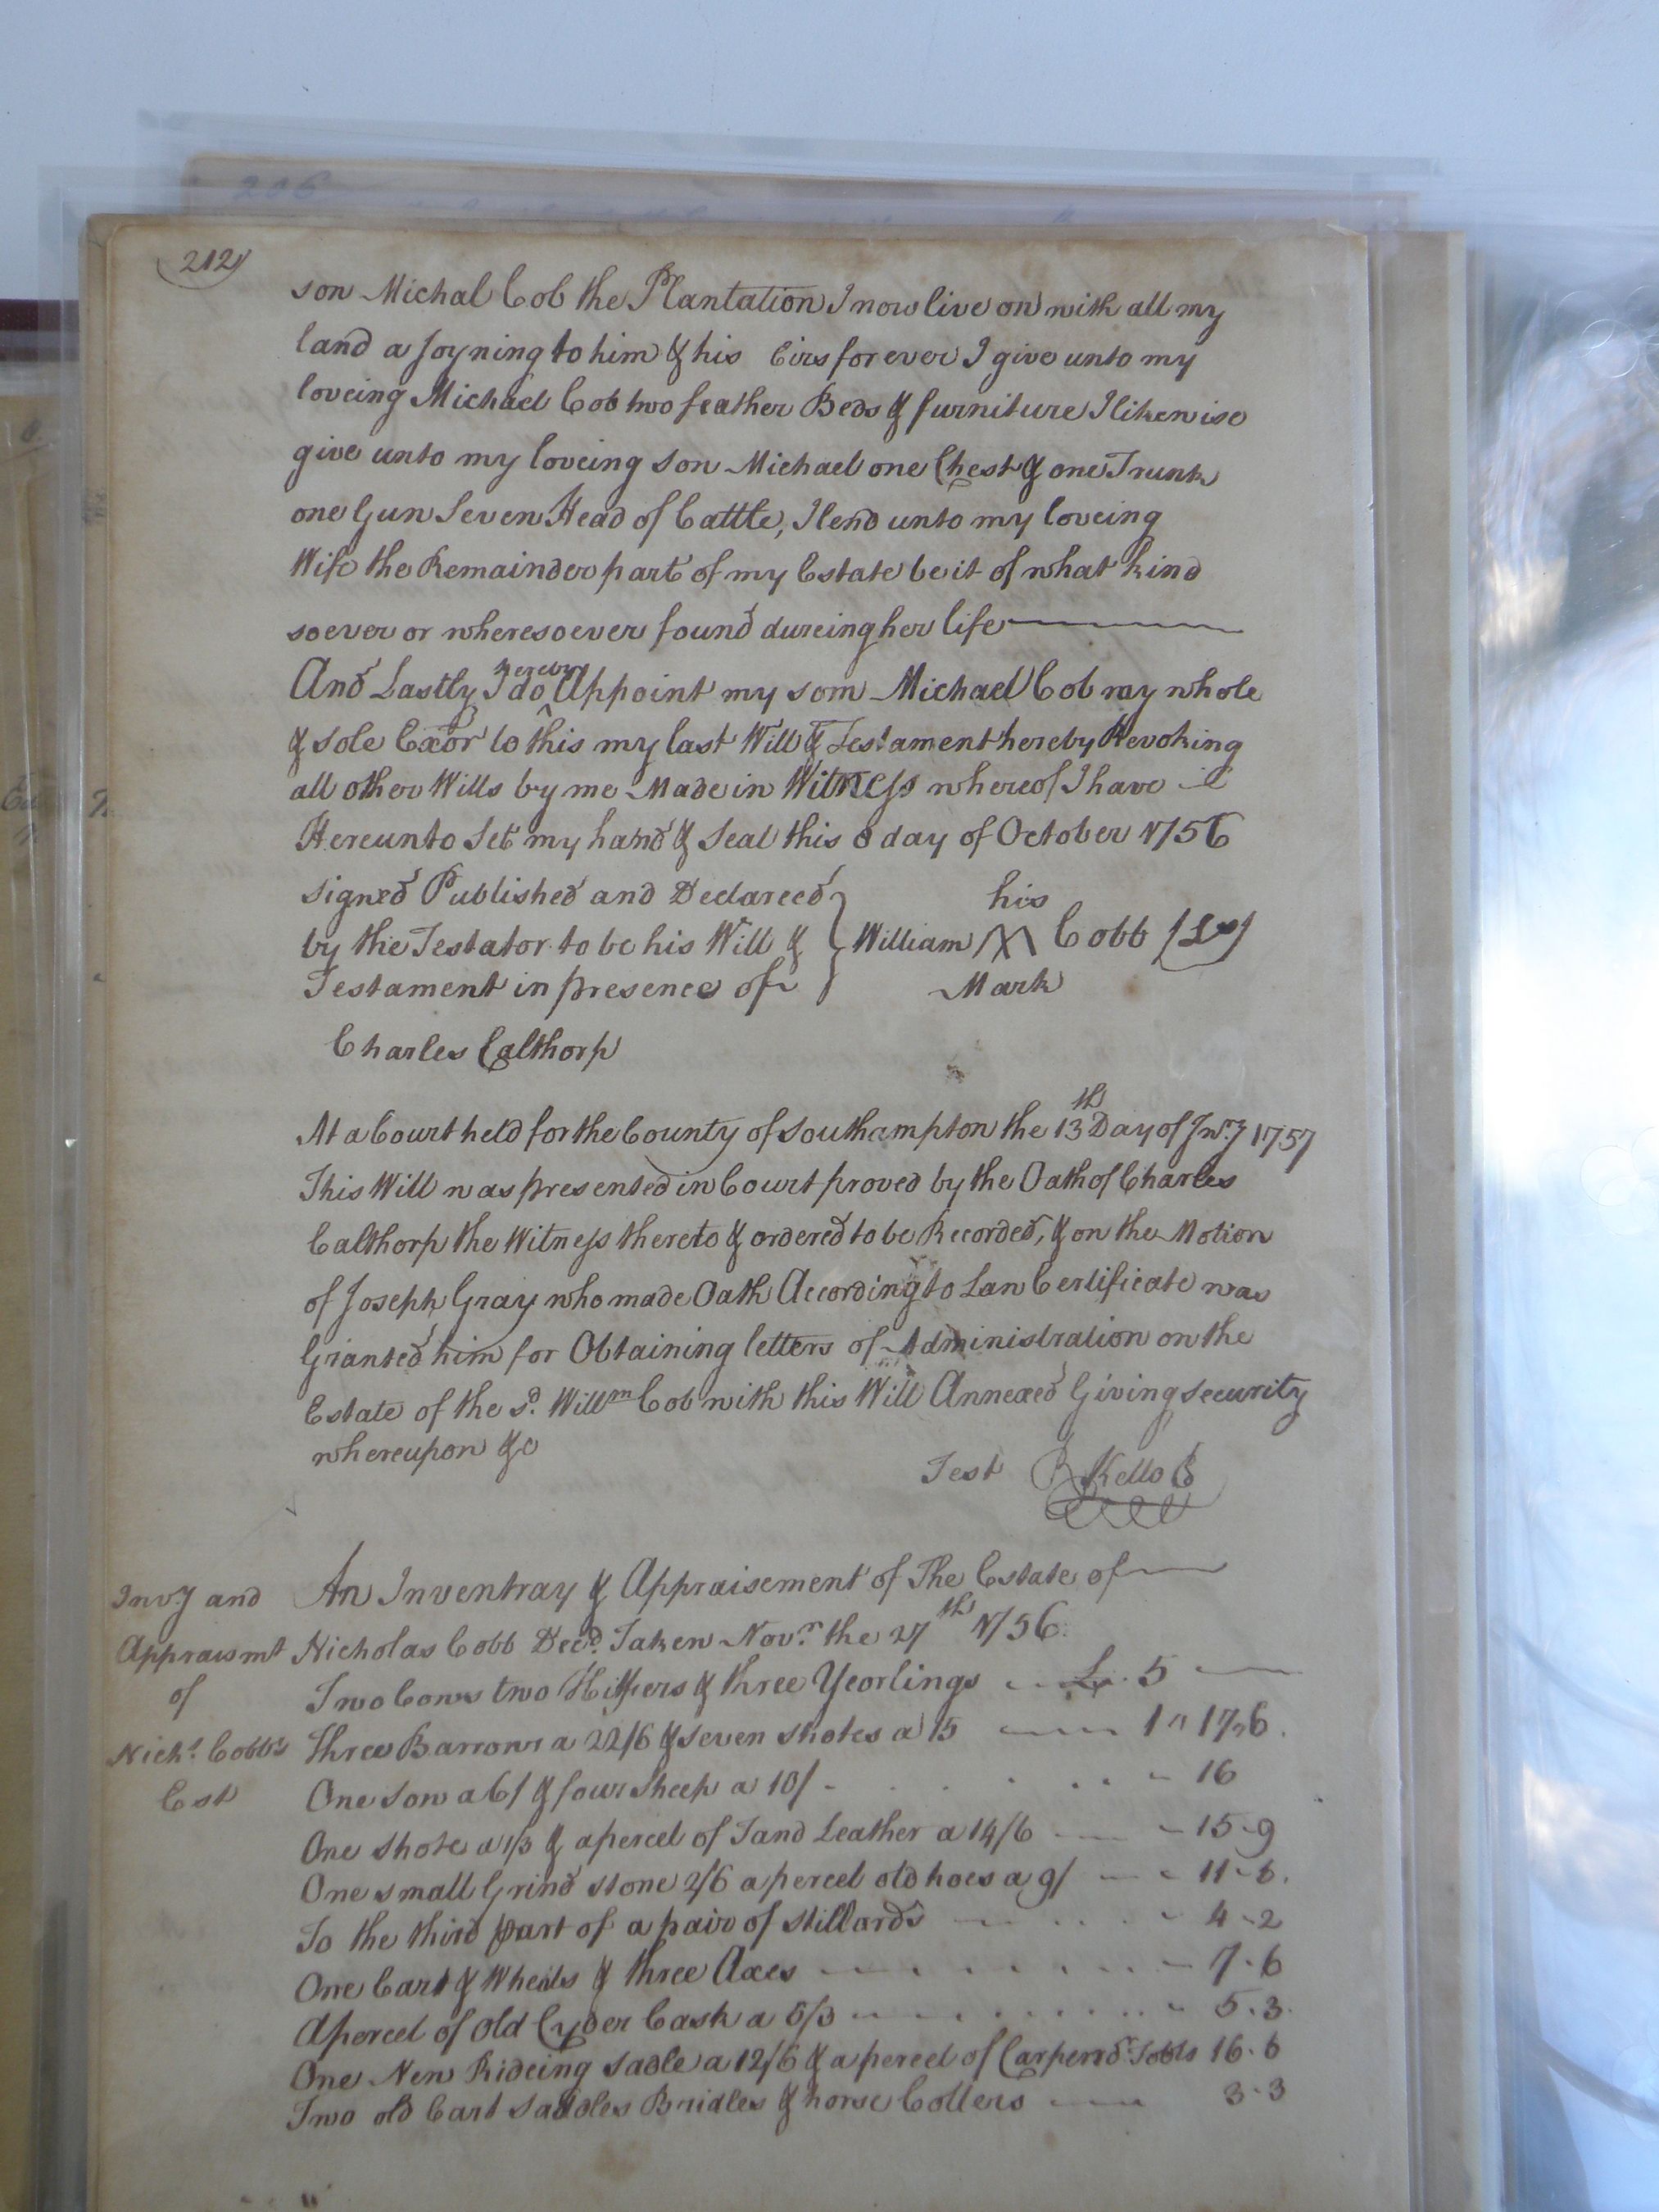 212
son Michal Cob the Plantation I now live on with all my
land a joyning to him & his Eirs forever I give unto my
loveing Michael Cob two feather Beds & furniture I likewise
give unto my loveing son Michael one Chest & one Trunk
one Gun Seven Head of Cattle, I lend unto my loveing
Wife the Remainder part of my Estate be it of what kind
soever or wheresoever found dureing her life
And Lastly I do hereby Appoint my som Michael Cob my whole
& sole Exor to this my last Will & Testament hereby Revoking
all other Wills by me Made in Witness whereof I have
Hereunto Set my hand & Seal this 8 day of October 1756
Signed Published and Declareed
by the Testator to be his Will &
Testament in presence of
his
William X Cobb (LS)
Mark
Charles Calthorp
At a Court held for the County of Southampton the 13th Day of Jn.y 1757
This Will was presented in Court proved by the Oath of Charles
Calthorp the Witness thereto & ordered to be Recorded, & on the Motion
of Joseph Gray who made Oath According to Law Certificate was
Granted him for Obtaining letters of Administration on the
Estate of the sd. Willm Cob with this Will Annexed Giving security
whereupon &c
Test R Kello C
Inv.y and
Appraismt
of
Nichs. Cobbs
Est
An Inventray & Appraisement of The Estate of
Nicholas Cobb Decd. Taken Novr. the 27th 1756
Two Cows two Hiffers & three Yeorlings L. 5
Three Barrows a 22/6 & seven shotes a 15 1 " 17 " 6.
One Sow a 6/ & four Sheep a 10/ - 16
One Shote a 1/3 & a percel of Tand Leather a 14/6 - 15-9
One small Grind stone 2/6 a percel old hoes a 9/ - 11-6.
To the third part of a pair of Stillards - 4-2
One Cart & Wheels & three Axes - 7-6
A percel of old Cyder Cask a 5/3 - 5.3.
One New Rideing Sadle a 12/6 & a percel of Tools 16.6
Two old Cart Saddles Bridles & horse Collers 3-3